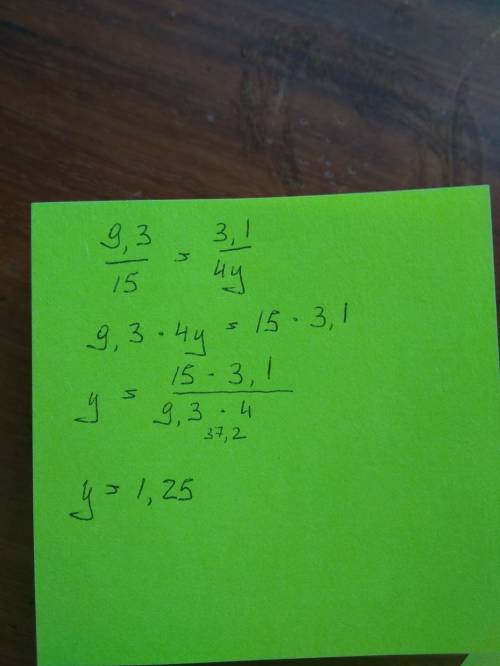 9,3/15 = 3,1/4y
9,3 · 4y = 15 · 3,1
y = 15 · 3,1/9,3 · 4
37,2
y = 1,25